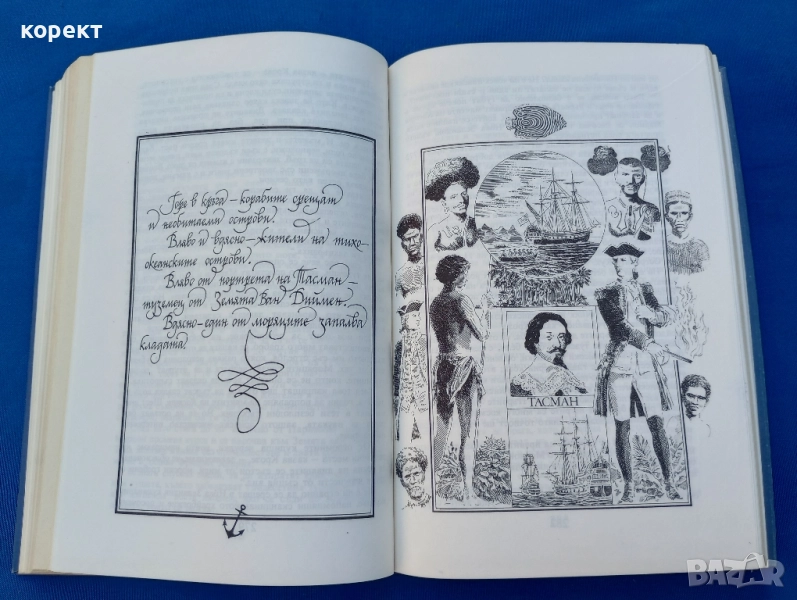 корект
Горе в кръга – корабите срещат
и необитаеми острови.
Вляво и вдясно – жители на тихо-
океанските острови.
Вляво от портрета на Тасман –
туземец от Земята Ван Димен.
Вдясно – един от моряците запалва
кладата.
ТАСМАН
BAZAR